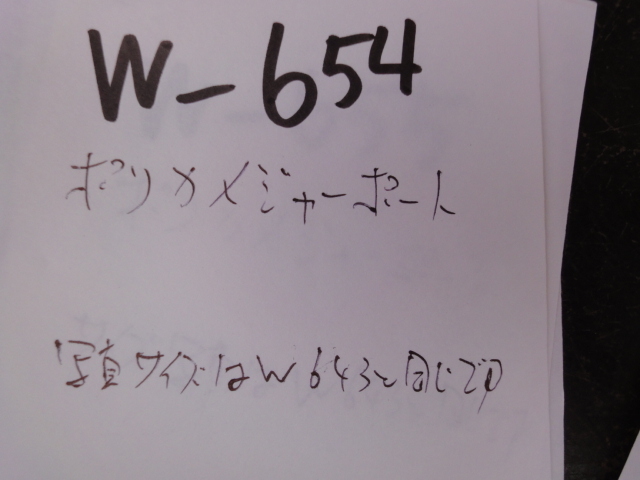 W-654
ポリカメジャーポート
写真サイズはW643と同じです